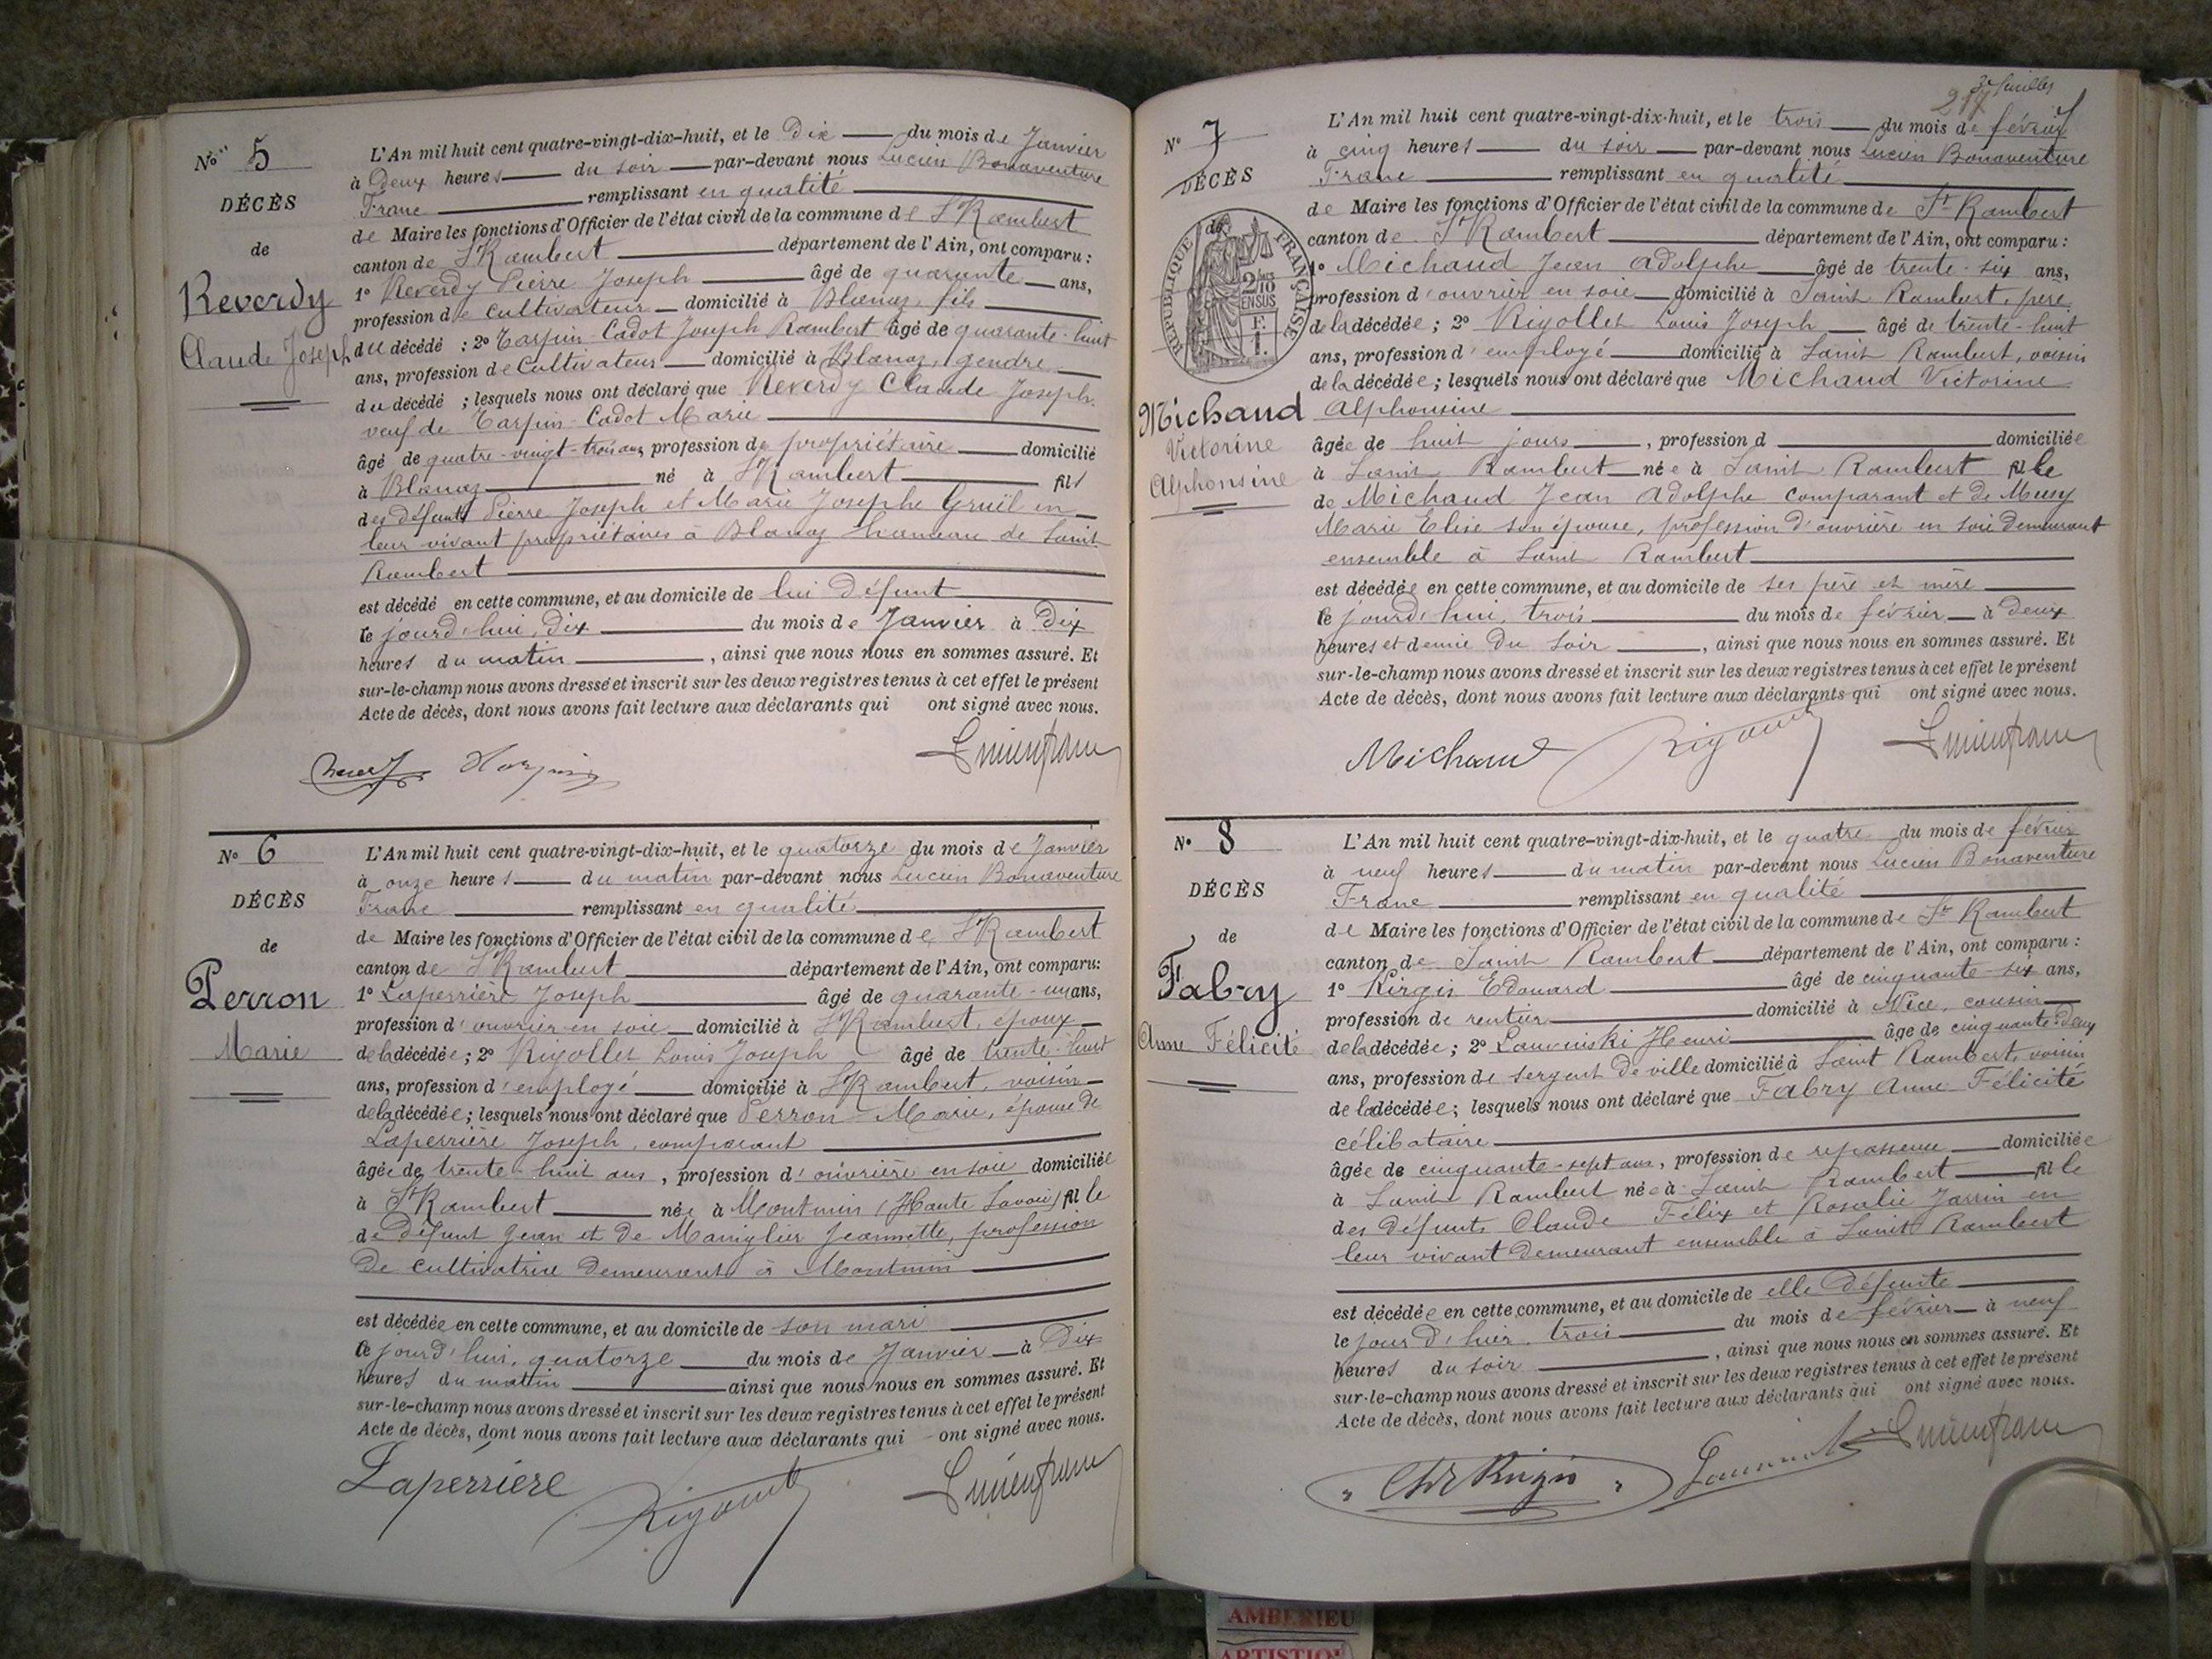 N° 5
DÉCÈS
de
Reverdy
Claude Joseph
L'An mil huit cent quatre-vingt-dix-huit, et le Dix du mois de Janvier
à Deux heures du soir par-devant nous Lucien Bonaventure
Franc remplissant en qualité
de Maire les fonctions d'Officier de l'état civil de la commune de St Rambert
canton de St Rambert département de l'Ain, ont comparu :
1° Reverdy Pierre Joseph âgé de quarante ans,
profession de cultivateur domicilié à Blanaz, fils
du décédé : 2° Tarpin-Cadot Joseph Rambert âgé de quarante-huit
ans, profession de Cultivateur domicilié à Blanaz, gendre
du décédé ; lesquels nous ont déclaré que Reverdy Claude Joseph
veuf de Tarpin-Cadot Marie
âgé de quatre-vingt-trois ans, profession de propriétaire domicilié
à Blanaz né à St Rambert fils
des défunts Pierre Joseph et Marie Josephe Gruël en
leur vivant propriétaires à Blanaz hameau de Saint
Rambert
est décédé en cette commune, et au domicile de lui défunt
le jourd'hui, dix du mois de Janvier à Dix
heures du matin , ainsi que nous nous en sommes assuré. Et
sur-le-champ nous avons dressé et inscrit sur les deux registres tenus à cet effet le présent
Acte de décès, dont nous avons fait lecture aux déclarants qui ont signé avec nous.
N° 6
DÉCÈS
de
Perron
Marie
L'An mil huit cent quatre-vingt-dix-huit, et le quatorze du mois de Janvier
à onze heures du matin par-devant nous Lucien Bonaventure
Franc remplissant en qualité
de Maire les fonctions d'Officier de l'état civil de la commune de St Rambert
canton de St Rambert département de l'Ain, ont comparu:
1° Laperrière Joseph âgé de quarante-un ans,
profession d'ouvrier en soie domicilié à St Rambert, époux
de la décédée ; 2° Rigollet Louis Joseph âgé de trente-huit
ans, profession d'employé domicilié à St Rambert, voisin
de la décédée ; lesquels nous ont déclaré que Perron Marie, épouse de
Laperrière Joseph, comparant
âgée de trente-huit ans, profession d'ouvrière en soie domiciliée
à St Rambert née à Montmin (Haute Savoie) fille
de défunt Jean et de Maniglier Jeannette, profession
de cultivatrice demeurant à Montmin
est décédée en cette commune, et au domicile de son mari
le jourd'hui, quatorze du mois de Janvier à Dix
heures du matin ainsi que nous nous en sommes assuré. Et
sur-le-champ nous avons dressé et inscrit sur les deux registres tenus à cet effet le présent
Acte de décès, dont nous avons fait lecture aux déclarants qui ont signé avec nous.
Laperriere
3e feuillet
N° 7
DÉCÈS
de
RÉPUBLIQUE FRANÇAISE
2/10 EN SUS
F. 1.
Michaud
Victorine
Alphonsine
L'An mil huit cent quatre-vingt-dix-huit, et le trois du mois de février
à cinq heures du soir par-devant nous Lucien Bonaventure
Franc remplissant en qualité
de Maire les fonctions d'Officier de l'état civil de la commune de St Rambert
canton de St Rambert département de l'Ain, ont comparu :
1° Michaud Jean Adolphe âgé de trente-six ans,
profession d'ouvrier en soie domicilié à Saint Rambert, père
de la décédée ; 2° Rigollet Louis Joseph âgé de trente-huit
ans, profession d'employé domicilié à Saint Rambert, voisin
de la décédée ; lesquels nous ont déclaré que Michaud Victorine
Alphonsine
âgée de huit jours , profession d domiciliée
à Saint Rambert née à Saint Rambert fille
de Michaud Jean Adolphe comparant et de Musy
Marie Elise son épouse, profession d'ouvrière en soie demeurant
ensemble à Saint Rambert
est décédée en cette commune, et au domicile de ses père et mère
le jourd'hui, trois du mois de février à deux
heures et demie du soir , ainsi que nous nous en sommes assuré. Et
sur-le-champ nous avons dressé et inscrit sur les deux registres tenus à cet effet le présent
Acte de décès, dont nous avons fait lecture aux déclarants qui ont signé avec nous.
Michaud
N° 8
DÉCÈS
de
Fabry
Anne Félicité
L'An mil huit cent quatre-vingt-dix-huit, et le quatre du mois de février
à neuf heures du matin par-devant nous Lucien Bonaventure
Franc remplissant en qualité
de Maire les fonctions d'Officier de l'état civil de la commune de St Rambert
canton de Saint Rambert département de l'Ain, ont comparu :
1° Kirgis Edouard âgé de cinquante-six ans,
profession de rentier domicilié à Nice, cousin
de la décédée ; 2° Henri âgé de cinquante-deux
ans, profession de sergent de ville domicilié à Saint Rambert, voisin
de la décédée ; lesquels nous ont déclaré que Fabry Anne Félicité
célibataire
âgée de cinquante-sept ans, profession de repasseuse domiciliée
à Saint Rambert née à Saint Rambert fille
des défunts Claude Félix et Rosalie Jarrin en
leur vivant demeurant ensemble à Saint Rambert
est décédée en cette commune, et au domicile de elle défunte
le jour d'hier trois du mois de février à neuf
heures du soir , ainsi que nous nous en sommes assuré. Et
sur-le-champ nous avons dressé et inscrit sur les deux registres tenus à cet effet le présent
Acte de décès, dont nous avons fait lecture aux déclarants qui ont signé avec nous.
AMBERIEU